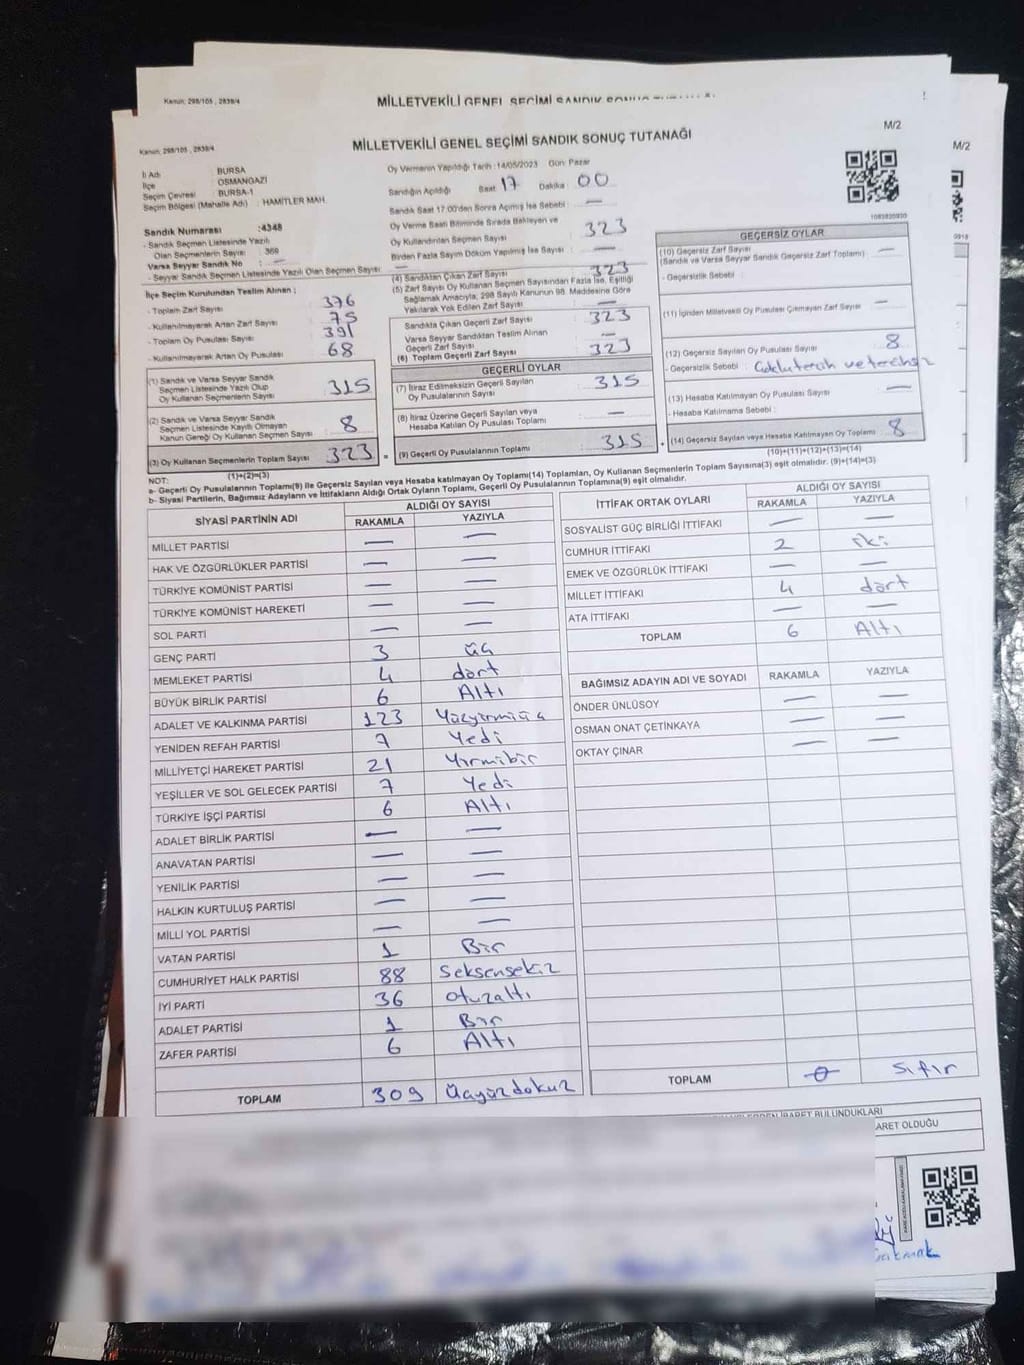 Kanun; 298/105 , 2839/4
MİLLETVEKİLİ GENEL SEÇİMİ SANDIK SONUÇ
M/2
Kanun; 298/105 , 2839/4
MİLLETVEKİLİ GENEL SEÇİMİ SANDIK SONUÇ TUTANAĞI
M/2
İl Adı : BURSA
İlçe : OSMANGAZİ
Seçim Çevresi : BURSA-1
Seçim Bölgesi (Mahalle Adı) : HAMİTLER MAH.
Oy Vermenin Yapıldığı Tarih :14/05/2023 Gün: Pazar
Sandığın Açıldığı Saat 17 Dakika 00
Sandık Saat 17:00'den Sonra Açılmış İse Sebebi : —
Oy Verme Saati Bitiminde Sırada Bekleyen ve
Oy Kullandırılan Seçmen Sayısı : 323
Birden Fazla Sayım Döküm Yapılmış İse Sayısı : —
Sandık Numarası :4348
- Sandık Seçmen Listesinde Yazılı
Olan Seçmenlerin Sayısı : 369
Varsa Seyyar Sandık No : —
- Seyyar Sandık Seçmen Listesinde Yazılı Olan Seçmen Sayısı: —
İlçe Seçim Kurulundan Teslim Alınan ;
- Toplam Zarf Sayısı : 376
- Kullanılmayarak Artan Zarf Sayısı : 75
- Toplam Oy Pusulası Sayısı : 391
- Kullanılmayarak Artan Oy Pusulası : 68
(1) Sandık ve Varsa Seyyar Sandık
Seçmen Listesinde Yazılı Olup
Oy Kullanan Seçmenlerin Sayısı : 315
(2) Sandık ve Varsa Seyyar Sandık
Seçmen Listesinde Kayıtlı Olmayan
Kanun Gereği Oy Kullanan Seçmen Sayısı : 8
(3) Oy Kullanan Seçmenlerin Toplam Sayısı : 323
(1)+(2)=(3)
(4) Sandıktan Çıkan Zarf Sayısı : 323
(5) Zarf Sayısı Oy Kullanan Seçmen Sayısından Fazla İse, Eşitliği
Sağlamak Amacıyla; 298 Sayılı Kanunun 98. Maddesine Göre
Yakılarak Yok Edilen Zarf Sayısı : —
Sandıkta Çıkan Geçerli Zarf Sayısı : 323
Varsa Seyyar Sandıktan Teslim Alınan
Geçerli Zarf Sayısı : —
(6) Toplam Geçerli Zarf Sayısı : 323
GEÇERLİ OYLAR
(7) İtiraz Edilmeksizin Geçerli Sayılan
Oy Pusulalarının Sayısı : 315
(8) İtiraz Üzerine Geçerli Sayılan veya
Hesaba Katılan Oy Pusulası Toplamı : —
(9) Geçerli Oy Pusulalarının Toplamı : 315
1083820920
GEÇERSİZ OYLAR
(10) Geçersiz Zarf Sayısı : —
(Sandık ve Varsa Seyyar Sandık Geçersiz Zarf Toplamı)
- Geçersizlik Sebebi :
(11) İçinden Milletvekili Oy Pusulası Çıkmayan Zarf Sayısı : —
(12) Geçersiz Sayılan Oy Pusulası Sayısı : 8
- Geçersizlik Sebebi :
(13) Hesaba Katılmayan Oy Pusulası Sayısı : —
- Hesaba Katılmama Sebebi :
(14) Geçersiz Sayılan veya Hesaba Katılmayan Oy Toplamı : 8
(10)+(11)+(12)+(13)=(14)
NOT:
a- Geçerli Oy Pusulalarının Toplamı(9) ile Geçersiz Sayılan veya Hesaba katılmayan Oy Toplamı(14) Toplamları, Oy Kullanan Seçmenlerin Toplam Sayısına(3) eşit olmalıdır. (9)+(14)=(3)
b- Siyasi Partilerin, Bağımsız Adayların ve İttifakların Aldığı Ortak Oyların Toplamı, Geçerli Oy Pusulalarının Toplamına(9) eşit olmalıdır.
SİYASİ PARTİNİN ADI ALDIĞI OY SAYISI
RAKAMLA YAZIYLA
MİLLET PARTİSİ — —
HAK VE ÖZGÜRLÜKLER PARTİSİ — —
TÜRKİYE KOMÜNİST PARTİSİ — —
TÜRKİYE KOMÜNİST HAREKETİ — —
SOL PARTİ — —
GENÇ PARTİ 3 üç
MEMLEKET PARTİSİ 4 dört
BÜYÜK BİRLİK PARTİSİ 6 Altı
ADALET VE KALKINMA PARTİSİ 123 Yüzyirmiüç
YENİDEN REFAH PARTİSİ 7 Yedi
MİLLİYETÇİ HAREKET PARTİSİ 21 Yirmibir
YEŞİLLER VE SOL GELECEK PARTİSİ 7 Yedi
TÜRKİYE İŞÇİ PARTİSİ 6 Altı
ADALET BİRLİK PARTİSİ — —
ANAVATAN PARTİSİ — —
YENİLİK PARTİSİ — —
HALKIN KURTULUŞ PARTİSİ — —
MİLLİ YOL PARTİSİ — —
VATAN PARTİSİ 1 Bir
CUMHURİYET HALK PARTİSİ 88 Seksensekiz
İYİ PARTİ 36 otuzaltı
ADALET PARTİSİ 1 Bir
ZAFER PARTİSİ 6 Altı
TOPLAM 309 Üçyüzdokuz
İTTİFAK ORTAK OYLARI ALDIĞI OY SAYISI
RAKAMLA YAZIYLA
SOSYALİST GÜÇ BİRLİĞİ İTTİFAKI — —
CUMHUR İTTİFAKI 2 iki
EMEK VE ÖZGÜRLÜK İTTİFAKI — —
MİLLET İTTİFAKI 4 dört
ATA İTTİFAKI — —
TOPLAM 6 Altı
BAĞIMSIZ ADAYIN ADI VE SOYADI RAKAMLA YAZIYLA
ÖNDER ÜNLÜSOY — —
OSMAN ONAT ÇETİNKAYA — —
OKTAY ÇINAR — —
TOPLAM 0 Sıfır
İBARET BULUNDUKLARI
ARET OLDUĞU